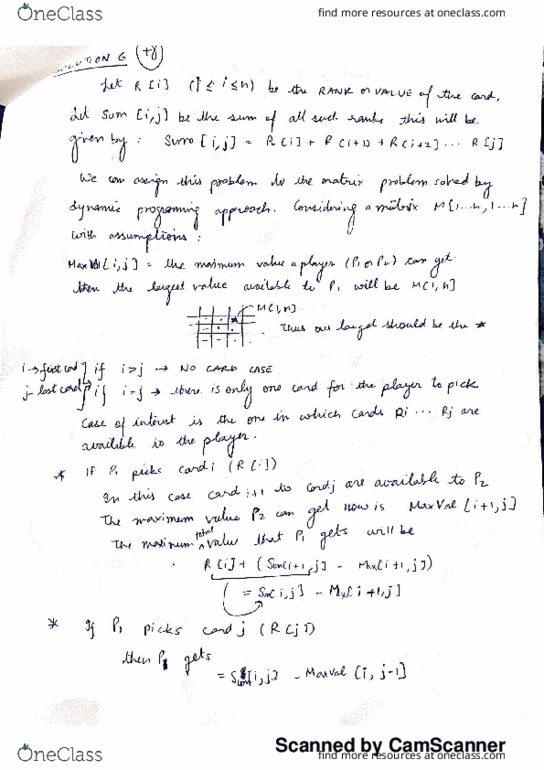 OneClass
find more resources at oneclass.com
SOLUTION 6
Let R[i] (1 ≤ i ≤ n) be the RANK or VALUE of the card,
Let Sum [i,j] be the sum of all such ranks this will be
given by: Sum [i,j] = R[i] + R[i+1] + R[i+2] ... R[j]
We can assign this problem to the matrix problem solved by
dynamic programing approach. Considering a matrix M[1...n, 1...n]
with assumptions:
MaxVal[i,j] = the maximum value a player (P1 or P2) can get
then the largest value available to P1 will be M[1,n]
M[1,n]
Thus our target should be the *
i → first card } if i > j → NO CARD CASE
j - last card } if i = j → there is only one card for the player to pick
Case of interest is the one in which cards Ri ... Rj are
available to the player.
* If P1 picks card i (R[i])
In this case card i+1 to card j are available to P2
The maximum value P2 can get now is MaxVal [i+1,j]
The maximum total value that P1 gets will be
R[i] + (Sum[i+1,j] - Max[i+1,j])
= Sum[i,j] - Max[i+1,j]
* If P1 picks card j (R[j])
then P1 gets
= Sum[i,j] - MaxVal [i, j-1]
Scanned by CamScanner
OneClass
find more resources at oneclass.com